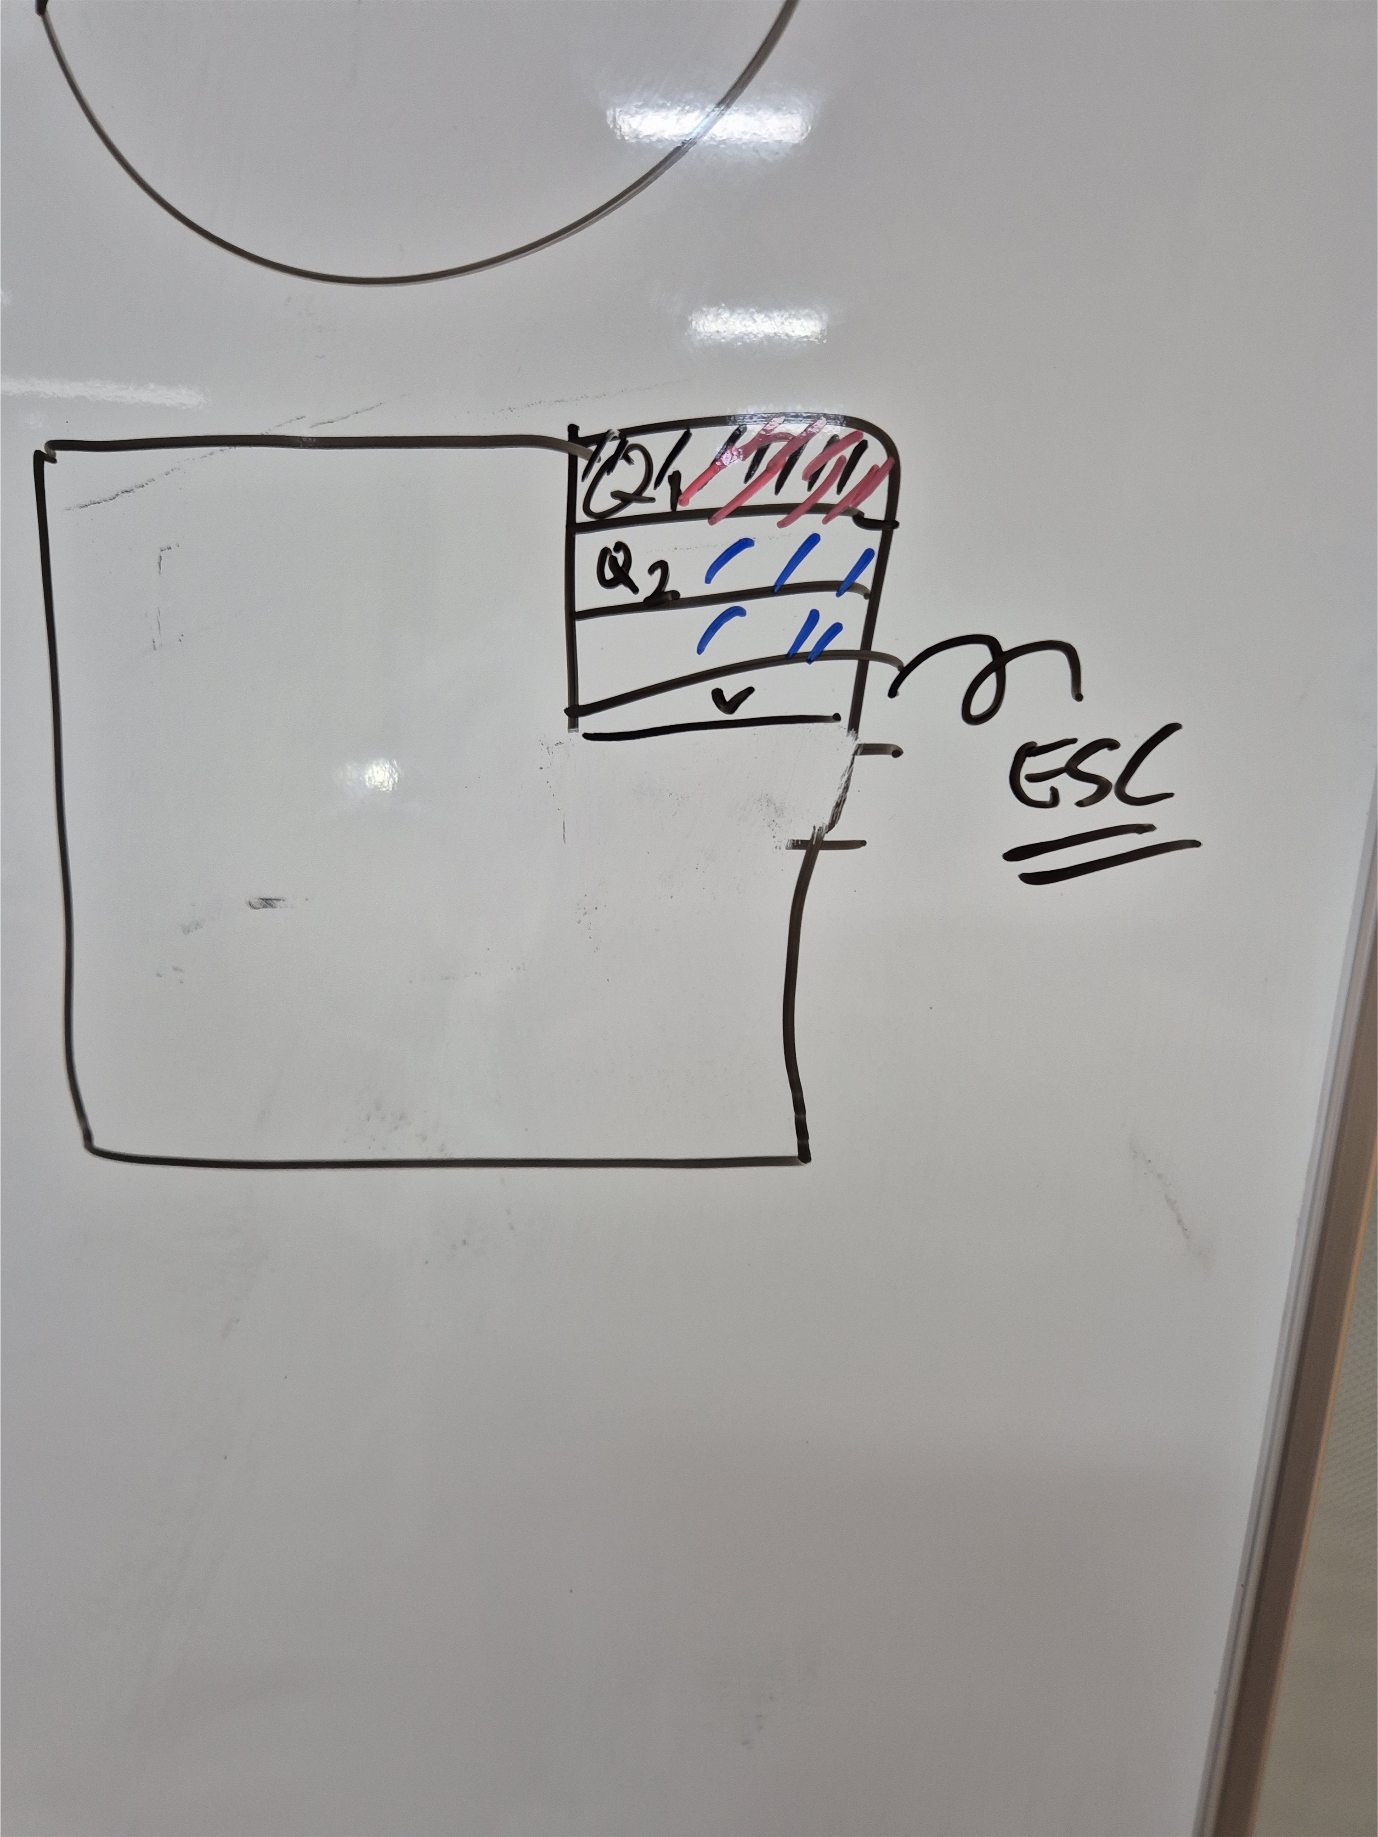 Q1
Q2
ESC